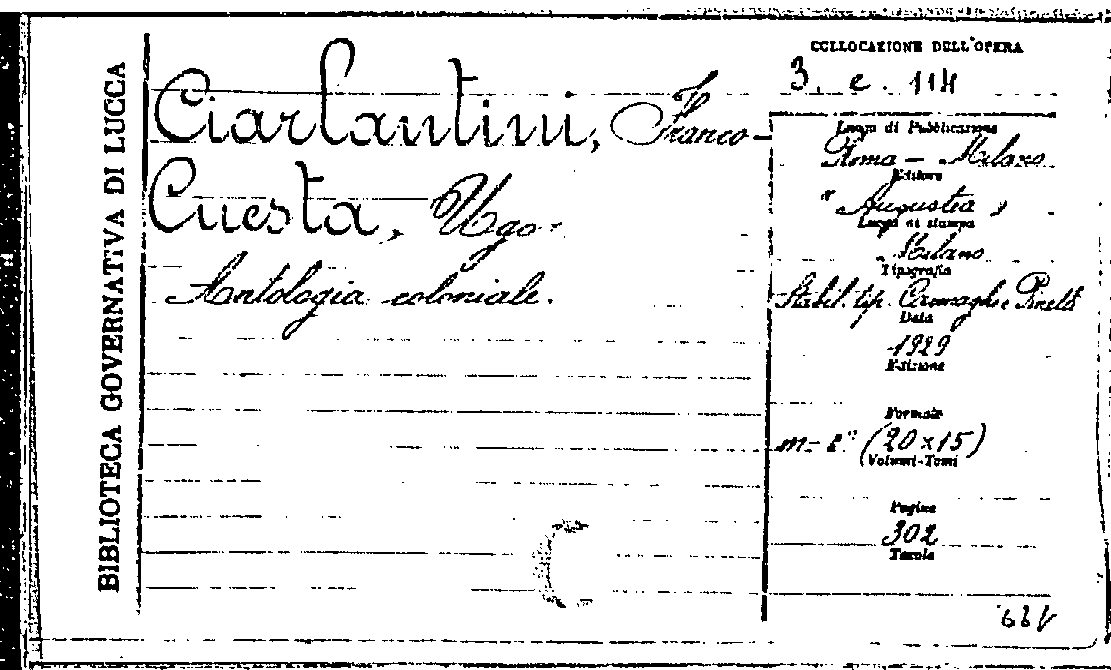 BIBLIOTECA GOVERNATIVA DI LUCCA
Ciarlantini, Franco -
Cuesta, Ugo.
Antologia coloniale.
COLLOCAZIONE DELL'OPERA
3. e. 114
Luogo di Pubblicazione
Roma - Milano
Editore
"Augustea"
Luogo di stampa
Milano
Tipografia
Stabil. tip. e Pinelli
Data
1929
Edizione
Formato
m-8° (20x15)
Volumi-Tomi
Pagine
302
Tavole